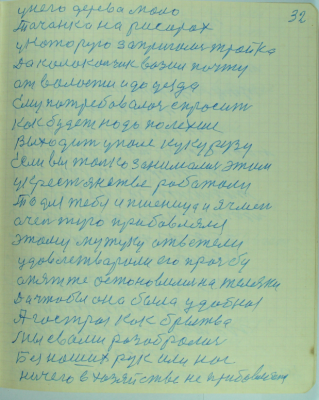 32
у него дерева мало
Тачанка на рисорах
у которую запригали тройка
Да колакольчик возил почту
от валости и до уезда
Ему потребовалос спросит
Как будет подь полехше
Выходит у поле кукурузу
Если вы только занимались этим
у крестянстве работали
То для тебя и пшеницу и ячмен
очен туго прибовлял
Этому мутуку ответели
удовлетворили его прозбу
опят же остоновились на тылязки
Да чтобы она была удобноя
А гострая как бритва
Мы свами розобролис
Без наших рук или ног
ничего в хозяйстве не прибовляем